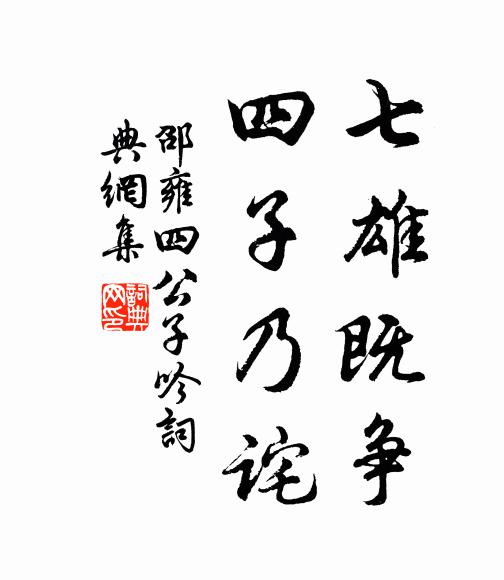 七雄既争
四子乃詫
邵雍四公子吟詞
典網集
詞典網印